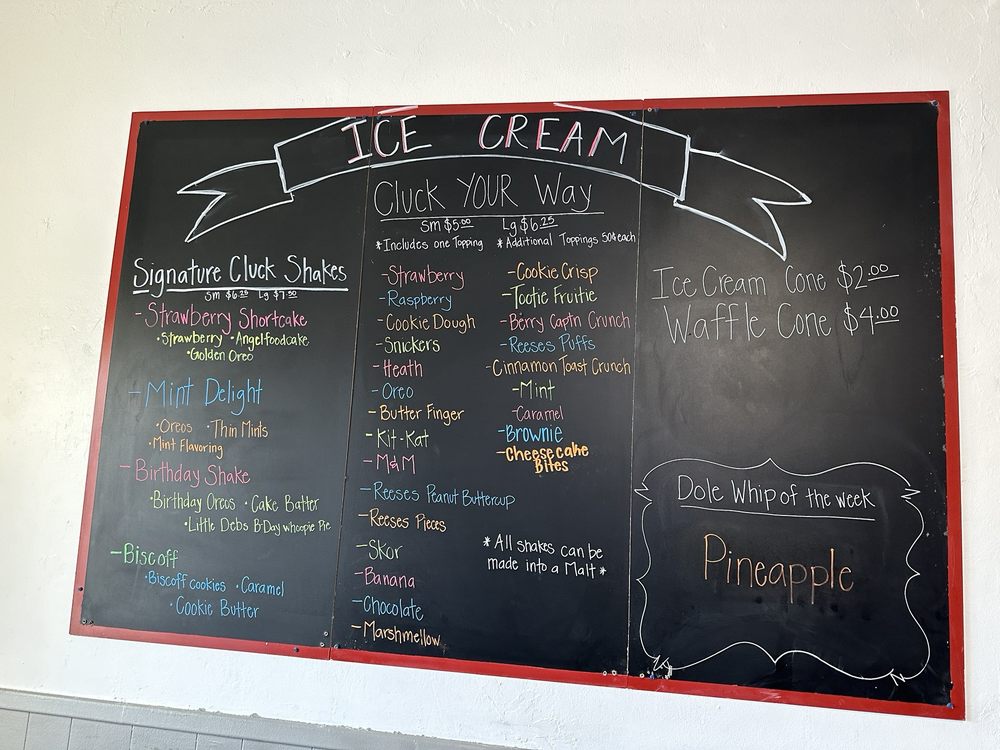 ICE CREAM
Signature Cluck Shakes
Sm $6.25 Lg $7.50
-Strawberry Shortcake
•Strawberry •Angelfoodcake
•Golden Oreo
-Mint Delight
•Oreos •Thin Mints
•Mint Flavoring
-Birthday Shake
•Birthday Oreos •Cake Batter
•Little Debs B-Day whoopie Pie
-Biscoff
•Biscoff cookies •Caramel
•Cookie Butter
Cluck YOUR Way
Sm $5.00 Lg $6.25
*Includes one Topping *Additional Toppings 50¢ each
-Strawberry
-Raspberry
-Cookie Dough
-Snickers
-Heath
-Oreo
-Butter Finger
-Kit-Kat
-M&M
-Reeses Peanut Buttercup
-Reeses Pieces
-Skor
-Banana
-Chocolate
-Marshmellow
-Cookie Crisp
-Tootie Fruitie
-Berry Captn Crunch
-Reeses Puffs
-Cinnamon Toast Crunch
-Mint
-Caramel
-Brownie
-Cheesecake
Bites
*All shakes can be
made into a Malt*
Ice Cream Cone $2.00
Waffle Cone $4.00
Dole Whip of the week
Pineapple